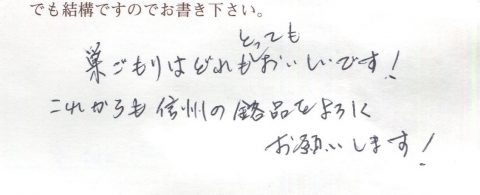 でも結構ですのでお書き下さい。
巣ごもりはどれもとってもおいしいです！
これからも信州の銘品をよろしく
お願いします！